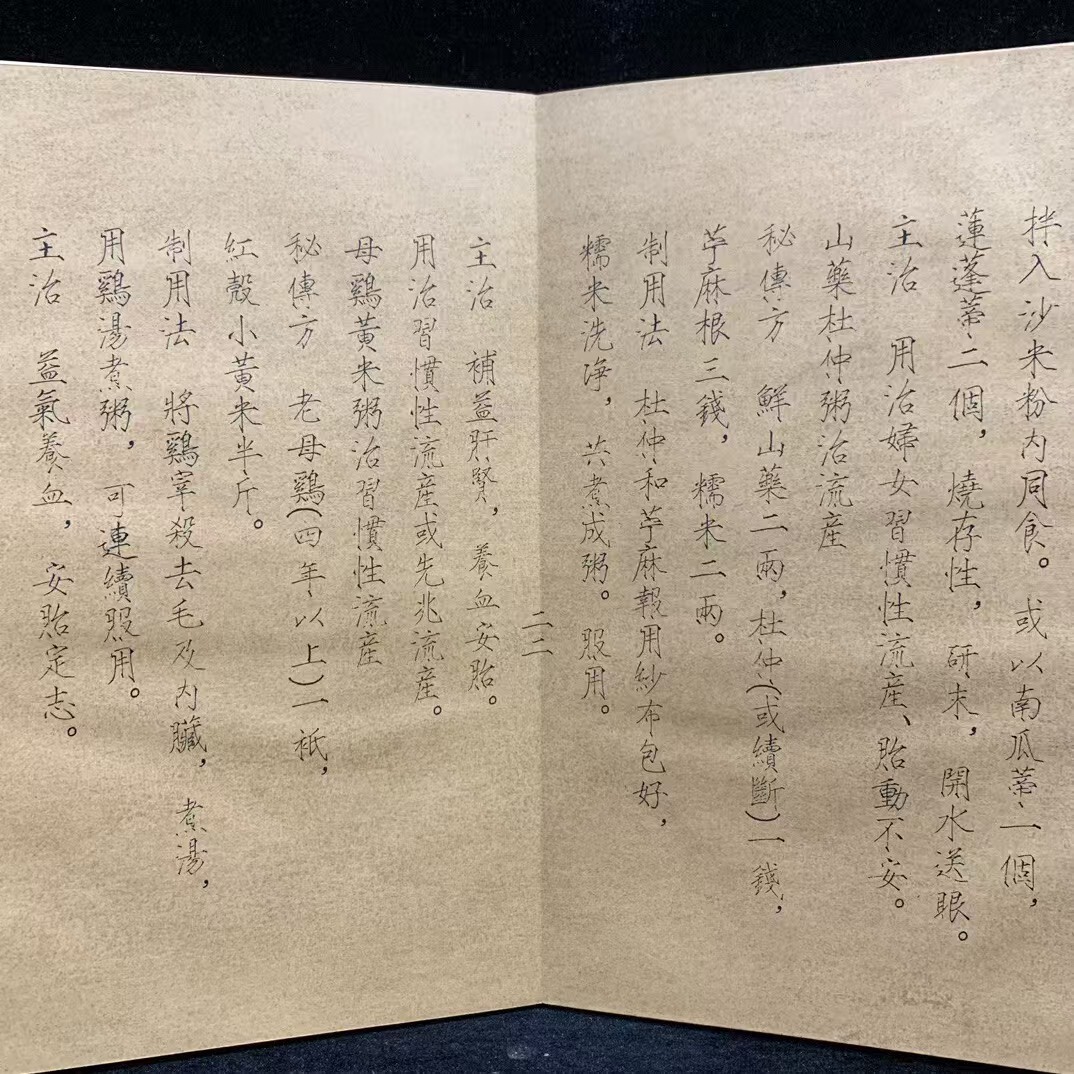 拌入沙米粉内同食。或以南瓜蒂一個，
蓮蓬蒂二個，燒存性，研末，開水送眼。
主治　用治婦女習慣性流産、胎動不安。
山藥杜仲粥治流産
秘傳方　鮮山藥二兩，杜仲(或續斷)一錢，
苧麻根三錢，糯米二兩。
制用法　杜仲和苧麻報用紗布包好，
糯米洗净，共煮成粥。服用。
二二
主治　補益肝腎，養血安胎。
用治習慣性流産或先兆流産。
母鷄黄米粥治習慣性流産
秘傳方　老母鷄(四年以上)一衹，
紅殼小黄米半斤。
制用法　將鷄宰殺去毛及内臟，煮湯，
用鷄湯煮粥，可連續服用。
主治　益氣養血，安胎定志。